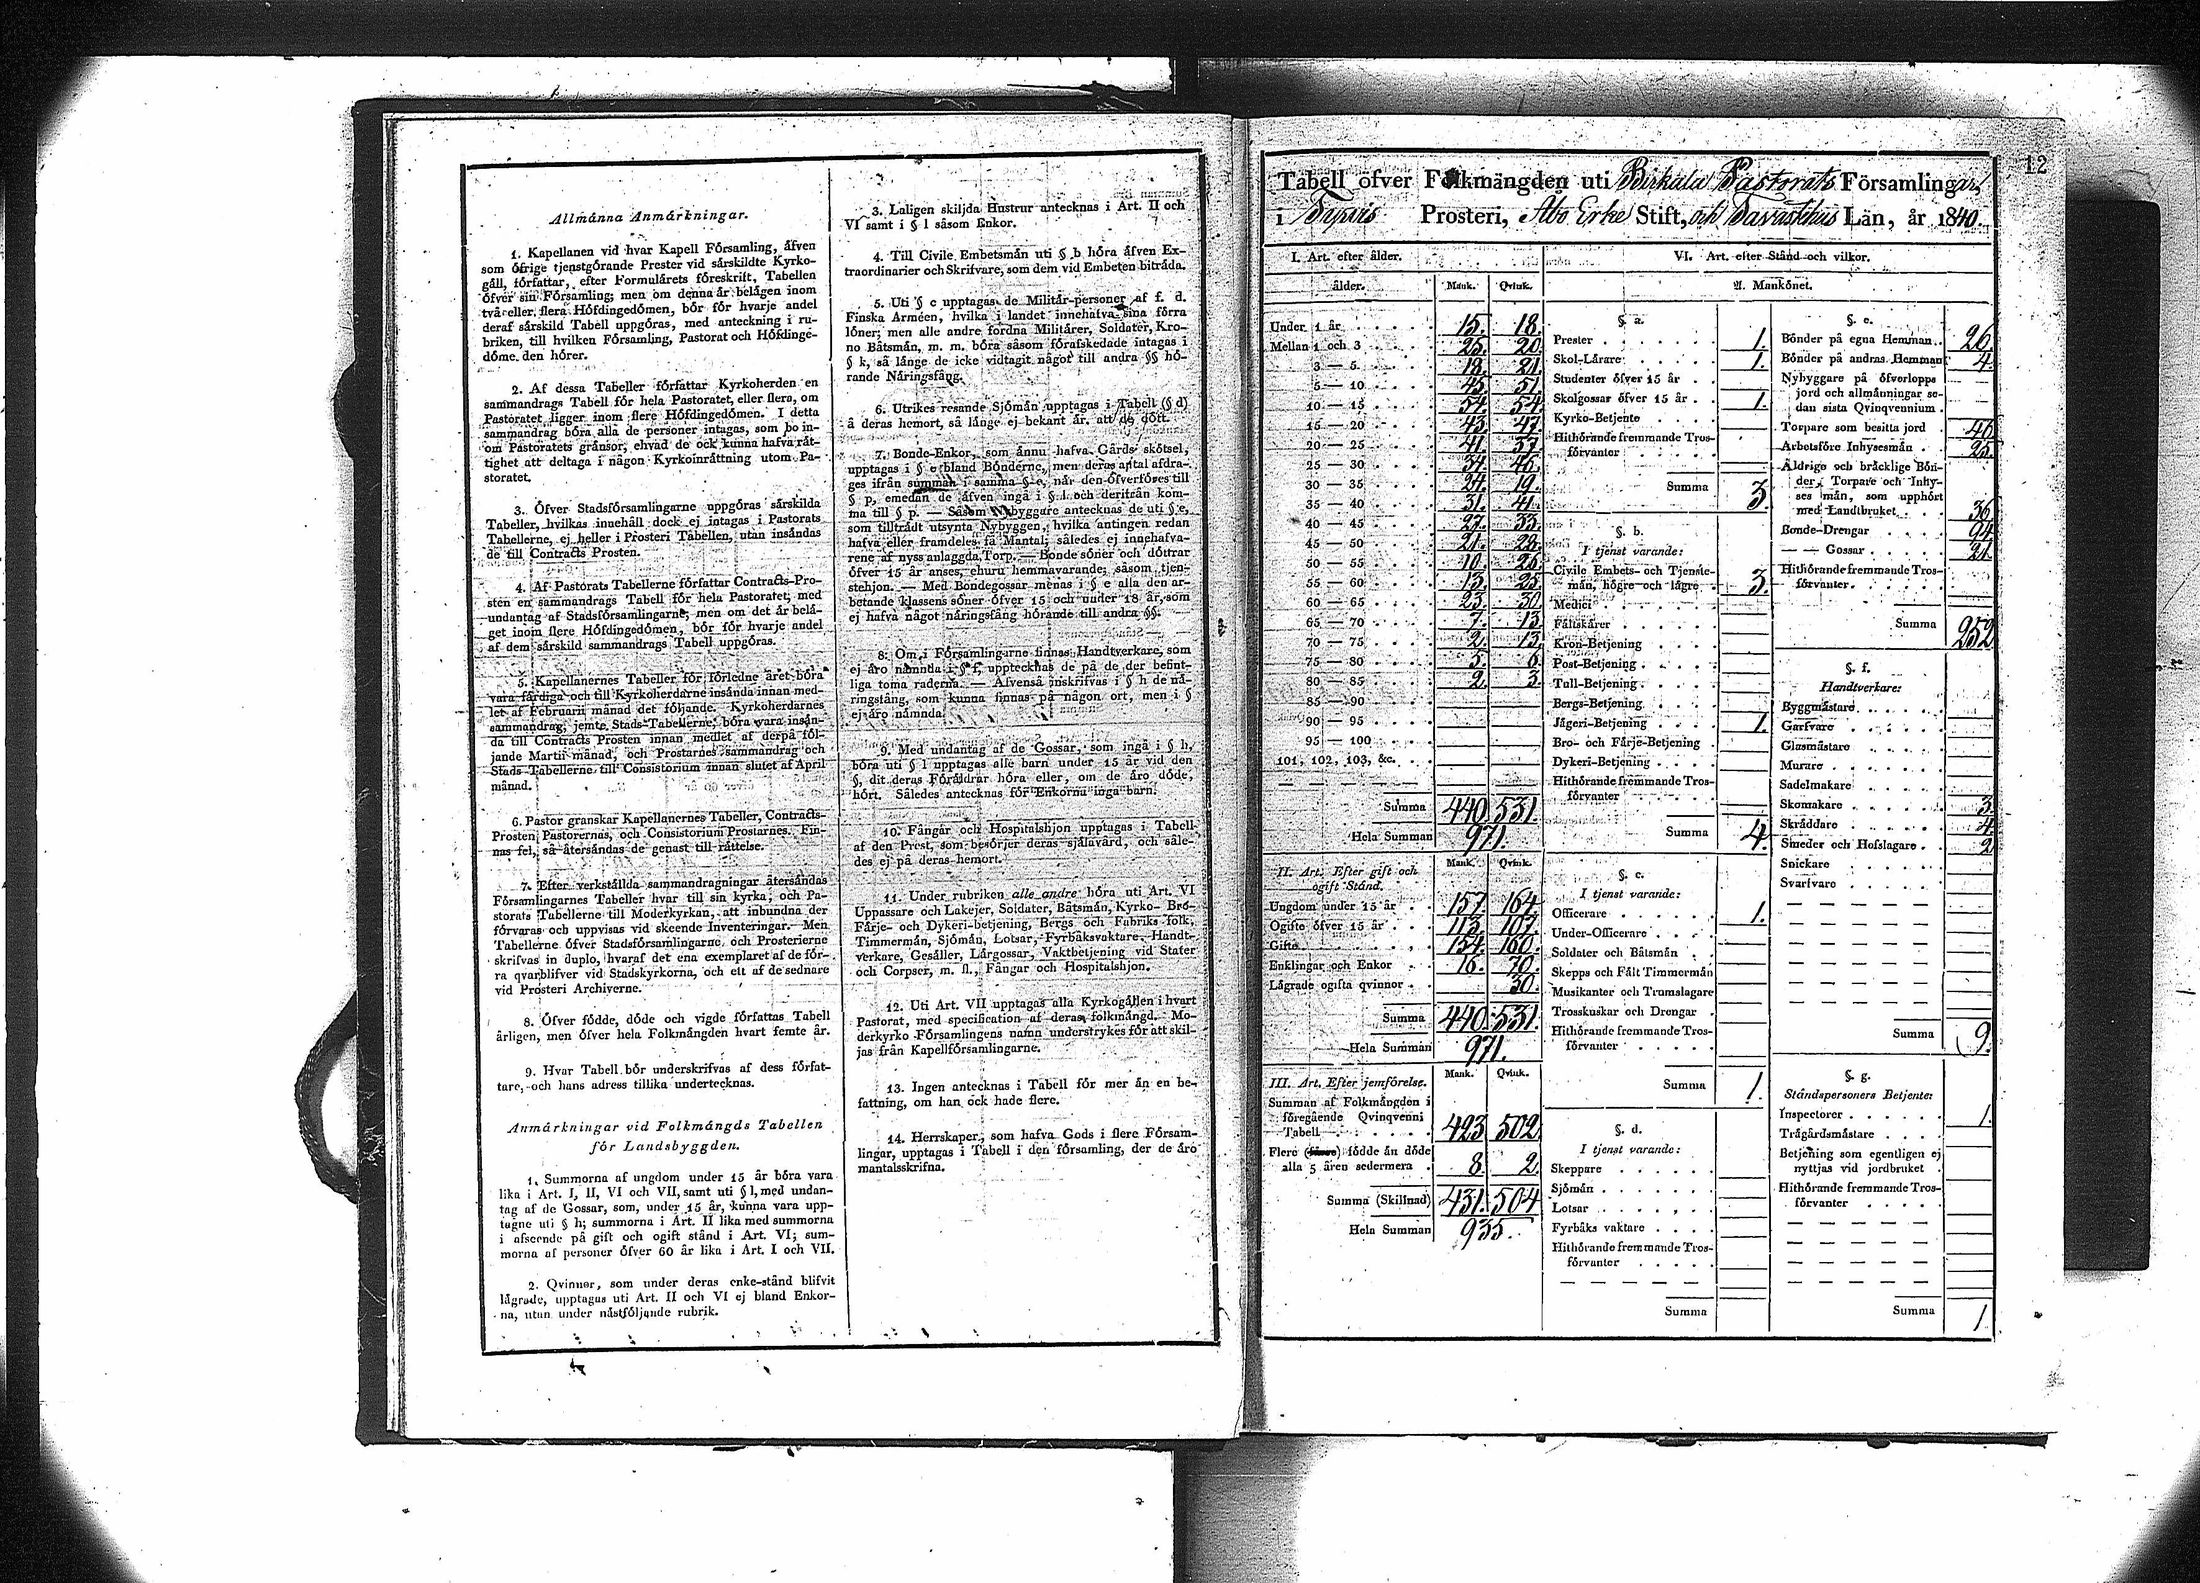 Allmänna Anmärkningar.
1. Kapellanen vid hvar Kapell Församling, äfven
som öfrige tjenstgörande Prester vid särskildte Kyrko-
gäll, författar, efter Formulärets föreskrift, Tabellen
öfver sin Församling; men om denna är belägen inom
två eller flera Höfdingedömen, bör för hvarje andel
deraf särskild Tabell uppgöras, med anteckning i ru-
briken, till hvilken Församling, Pastorat och Höfdinge-
döme den hörer.
2. Af dessa Tabeller författar Kyrkoherden en
sammandrags Tabell för hela Pastoratet, eller flera, om
Pastoratet ligger inom flere Höfdingedömen. I detta
sammandrag böra alla de personer intagas, som bo in-
om Pastoratets gränsor, ehvad de ock kunna hafva rät-
tighet att deltaga i någon Kyrkoinrättning utom Pa-
storatet.
3. Öfver Stadsförsamlingarne uppgöras särskilda
Tabeller, hvilkas innehåll dock ej intagas i Pastorats
Tabellerne, ej heller i Prosteri Tabellen, utan insändas
de till Contracts Prosten.
4. Af Pastorats Tabellerne författar Contracts-Pro-
sten en sammandrags Tabell för hela Pastoratet, med
undantag af Stadsförsamlingarne; men om det är belä-
get inom flere Höfdingedömen, bör för hvarje andel
af dem särskild sammandrags Tabell uppgöras.
5. Kapellanernes Tabeller för förledne året böra
vara färdiga och till Kyrkoherdarne insända innan med-
let af Februarii månad det följande. Kyrkoherdarnes
sammandrag, jemte Stads-Tabellerne, böra vara insän-
da till Contracts Prosten innan medlet af derpå föl-
jande Martii månad, och Prostarnes sammandrag och
Stads-Tabellerne till Consistorium innan slutet af April
månad.
6. Pastor granskar Kapellanernes Tabeller, Contracts-
Prosten Pastorernas, och Consistorium Prostarnes. Fin-
nas fel, så återsändas de genast till rättelse.
7. Efter verkställda sammandragningar återsändas
Församlingarnes Tabeller hvar till sin kyrka, och Pa-
storats Tabellerne till Moderkyrkan, att inbundna der
förvaras och uppvisas vid skeende Inventeringar. Men
Tabellerne öfver Stadsförsamlingarne och Prosterierne
skrifvas in duplo, hvaraf det ena exemplaret af de för-
ra qvarblifver vid Stadskyrkorna, och ett af de sednare
vid Prosteri Archiverne.
8. Öfver födde, döde och vigde författas Tabell
årligen, men öfver hela Folkmängden hvart femte år.
9. Hvar Tabell bör underskrifvas af dess förfat-
tare, och hans adress tillika undertecknas.
Anmärkningar vid Folkmängds Tabellen
för Landsbyggden.
1. Summorna af ungdom under 15 år böra vara
lika i Art. I, II, VI och VII, samt uti § l, med undan-
tag af de Gossar, som, under 15 år, kunna vara upp-
tagne uti § h; summorna i Art. II lika med summorna
i afseende på gift och ogift stånd i Art. VI; sum-
morna af personer öfver 60 år lika i Art. I och VII.
2. Qvinnor, som under deras enke-stånd blifvit
lägrade, upptagas uti Art. II och VI ej bland Enkor-
na, utan under nästföljande rubrik.
3. Laligen skiljda Hustrur antecknas i Art. II och
VI samt i § l såsom Enkor.
4. Till Civile Embetsmän uti § b höra äfven Ex-
traordinarier och Skrifvare, som dem vid Embeten biträda.
5. Uti § c upptagas de Militär-personer af f. d.
Finska Arméen, hvilka i landet innehafva sina förra
löner; men alle andre fordna Militärer, Soldater, Kro-
no Båtsmän, m. m. böra såsom förafskedade intagas i
§ k, så länge de icke vidtagit något till andra §§ hö-
rande Näringsfång.
6. Utrikes resande Sjömän upptagas i Tabell (§ d)
å deras hemort, så länge ej bekant är, att de dött.
7. Bonde-Enkor, som ännu hafva Gårds skötsel,
upptagas i § e bland Bönderne, men deras antal afdra-
ges ifrån summan i samma § e, när den öfverföres till
§ p, emedan de äfven ingå i § l och derifrån kom-
ma till § p. — Såsom Nybyggare antecknas de uti § e,
som tillträdt utsynta Nybyggen, hvilka antingen redan
hafva eller framdeles få Mantal; således ej innehafva-
rene af nyss anlaggda Torp. — Bonde söner och döttrar
öfver 15 år anses, ehuru hemmavarande, såsom tjen-
stehjon. — Med Bondegossar menas i § e alla den ar-
betande klassens söner öfver 15 och under 18 år, som
ej hafva något näringsfång hörande till andra §§.
8. Om i Församlingarne finnas Handtverkare, som
ej äro nämnda i § f, upptecknas de på de der befint-
liga toma raderna. — Äfvenså inskrifvas i § h de nä-
ringsfång, som kunna finnas på någon ort, men i §
ej äro nämnda.
9. Med undantag af de Gossar, som ingå i § h,
böra uti § l upptagas alle barn under 15 år vid den
§, dit deras Föräldrar höra eller, om de äro döde,
hört. Således antecknas för Enkorna inga barn.
10. Fångar och Hospitalshjon upptagas i Tabell
af den Prest, som besörjer deras själavård, och såle-
des ej på deras hemort.
11. Under rubriken alle andre höra uti Art. VI
Uppassare och Lakejer, Soldater, Båtsmän, Kyrko- Bro-
Färje- och Dykeri-betjening, Bergs och Fabriks folk,
Timmermän, Sjömän, Lotsar, Fyrbåksvaktare, Handt-
verkare, Gesäller, Lärgossar, Vaktbetjening vid Stater
och Corpser, m. fl., Fångar och Hospitalshjon.
12. Uti Art. VII upptagas alla Kyrkogällen i hvart
Pastorat, med specification af deras folkmängd. Mo-
derkyrko-Församlingens namn understrykes för att skil-
jas från Kapellförsamlingarne.
13. Ingen antecknas i Tabell för mer än en be-
fattning, om han ock hade flere.
14. Herrskaper, som hafva Gods i flere Försam-
lingar, upptagas i Tabell i den församling, der de äro
mantalsskrifna.
12
Tabell öfver Folkmängden uti Birkala Pastorats Församlingar
i Tyrvis Prosteri, Åbo Erke Stift, och Tavastehus Län, år 1840.
I. Art. efter ålder.
ålder. Mank. Qvink.
Under 1 år 15. 18.
Mellan 1 och 3 25. 20.
3 — 5 18. 21.
5 — 10 45. 51.
10 — 15 54. 54.
15 — 20 43. 47.
20 — 25 41. 37.
25 — 30 34. 46.
30 — 35 24. 19.
35 — 40 31. 41.
40 — 45 27. 33.
45 — 50 21. 28.
50 — 55 10. 25.
55 — 60 13. 25.
60 — 65 23. 30.
65 — 70 7. 13.
70 — 75 2. 13.
75 — 80 5. 6.
80 — 85 2. 3.
85 — 90
90 — 95
95 — 100
101, 102, 103, &c.
Summa 440. 531.
Hela Summan 971.
II. Art. Efter gift och
ogift Stånd.
Mank. Qvink.
Ungdom under 15 år 157. 164.
Ogifte öfver 15 år 113. 107.
Gifte 154. 160.
Enklingar och Enkor 16. 70.
Lägrade ogifta qvinnor 30.
Summa 440. 531.
Hela Summan 971.
III. Art. Efter jemförelse. Mank. Qvink.
Summan af Folkmängden i
föregående Qvinqvenni
Tabell 423 502.
Flere födde än döde
alla 5 åren sedermera 8. 2.
Summa (Skillnad) 431. 504
Hela Summan 935.
VI. Art. efter Stånd och vilkor.
A. Mankönet.
§. a.
Prester 1.
Skol-Lärare 1.
Studenter öfver 15 år
Skolgossar öfver 15 år 1.
Kyrko-Betjente
Hithörande fremmande Tros-
förvanter
Summa 3.
§. b.
I tjenst varande:
Civile Embets- och Tjenste-
män, högre och lägre 3.
Medici
Fältskärer
Kron-Betjening
Post-Betjening
Tull-Betjening
Bergs-Betjening
Jägeri-Betjening 1.
Bro- och Färje-Betjening
Dykeri-Betjening
Hithörande fremmande Tros-
förvanter
Summa 4.
§. c.
I tjenst varande:
Officerare 1.
Under-Officerare
Soldater och Båtsmän
Skepps och Fält Timmermän
Musikanter och Trumslagare
Trosskuskar och Drengar
Hithörande fremmande Tros-
förvanter
Summa 1.
§. d.
I tjenst varande:
Skeppare
Sjömän
Lotsar
Fyrbåks vaktare
Hithörande fremmande Tros-
förvanter
Summa
§. e.
Bönder på egna Hemman 26.
Bönder på andras Hemman 4.
Nybyggare på öfverlopps
jord och allmänningar se-
dan sista Qvinqvennium
Torpare som besitta jord 46.
Arbetsföre Inhysesmän 25.
Åldrige och bräcklige Bön-
der, Torpare och Inhy-
ses män, som upphört
med Landtbruket 36
Bonde-Drengar 94
— — Gossar 21.
Hithörande fremmande Tros-
förvanter
Summa 252
§. f.
Handtverkare:
Byggmästare
Garfvare
Glasmästare
Murare
Sadelmakare
Skomakare 3.
Skräddare 4.
Smeder och Hofslagare 2
Snickare
Svarfvare
Summa 9.
§. g.
Ståndspersoners Betjente:
Inspectorer 1.
Trägårdsmästare
Betjening som egentligen ej
nyttjas vid jordbruket
Hithörande fremmande Tros-
förvanter
Summa 1